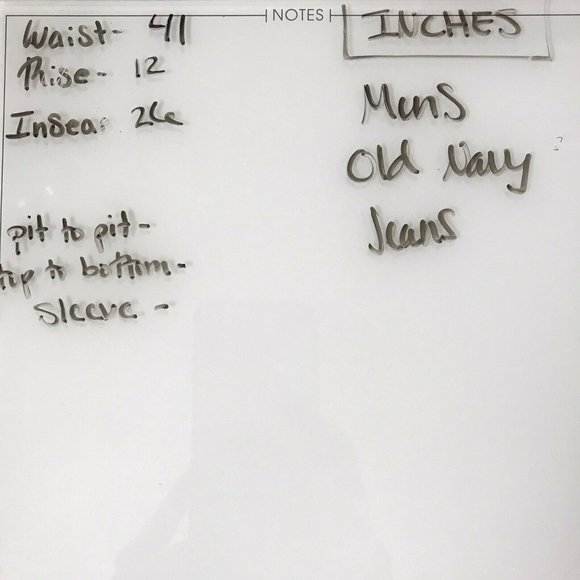 NOTES
INCHES
Waist- 41
Rise- 12
Insea
pit to pit-
top to bottom-
Sleeve -
Mens
Old Navy
Jeans